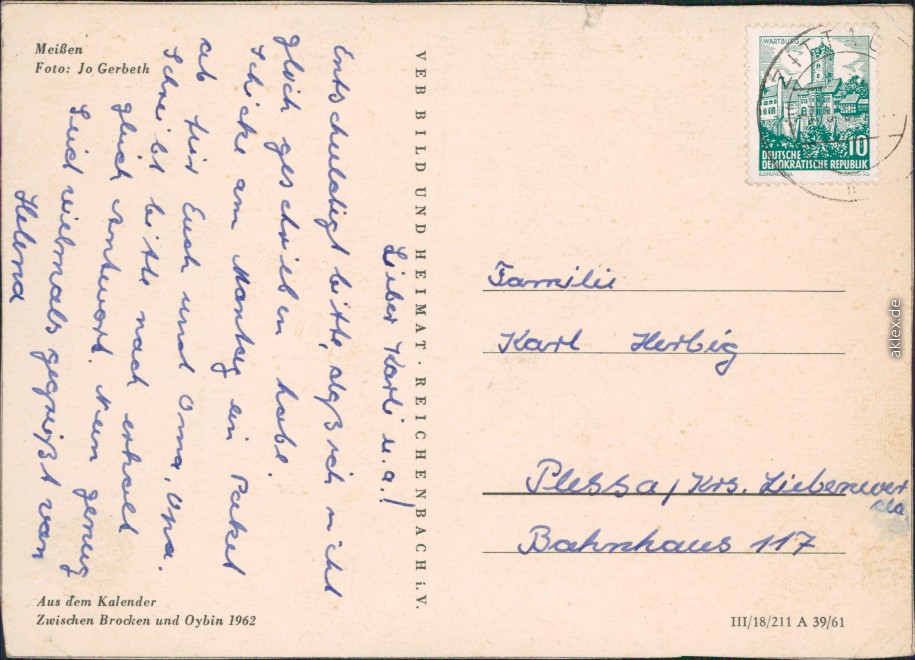 Meißen
Foto: Jo Gerbeth
Lieber Karli u.a!
Entschuldigt bitte, daß ich nicht
gleich geschrieben habe.
Schicke am Montag ein Paket
ab für Euch und Oma, Opa.
Schreibt bitte nach erhalt
gleich Antwort. Nun genug
Seid vielmals gegrüßt von
Helena
Aus dem Kalender
Zwischen Brocken und Oybin 1962
VEB BILD UND HEIMAT · REICHENBACH i. V.
WARTBURG
10
DEUTSCHE
DEMOKRATISCHE REPUBLIK
ZITTAU
Familie
Karl Herbig
Plessa / Krs. Liebenwer
da
Bahnhaus 117
III/18/211 A 39/61
aklex.de